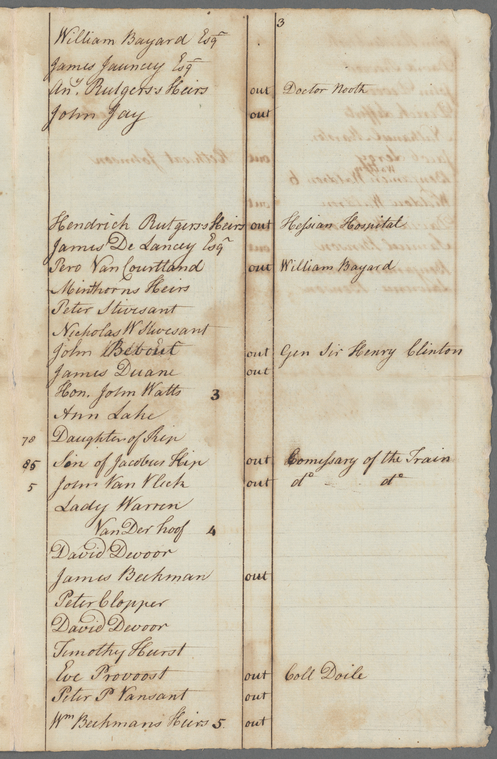 3
William Bayard Esqr
James Jauncey Esqr
Any. Rutgers's Heirs out Doctor Nooth
John Jay out
Hendrich Rutgers's Heirs out Hessian Hospital
James De Lancey Esqr
Pero Van Courtland out William Bayard
Minthorns Heirs
Peter Stivesant
Nicholas W Stivesant
John Bebout out Gen Sir Henry Clinton
James Duane out
Hon. John Watts 3
Ann Lake
78 Daughter of Kip
85 Son of Jacobus Kip out Comissary of the Train
5 John Van Vlech out do do
Lady Warren
Van Der hoof 4
David Devoor
James Beekman out
Peter Clopper
David Devoor
Timothy Hurst
Eve Provoost out Coll Doile
Peter P Vansant out
Wm Beekman's Heirs 5 out